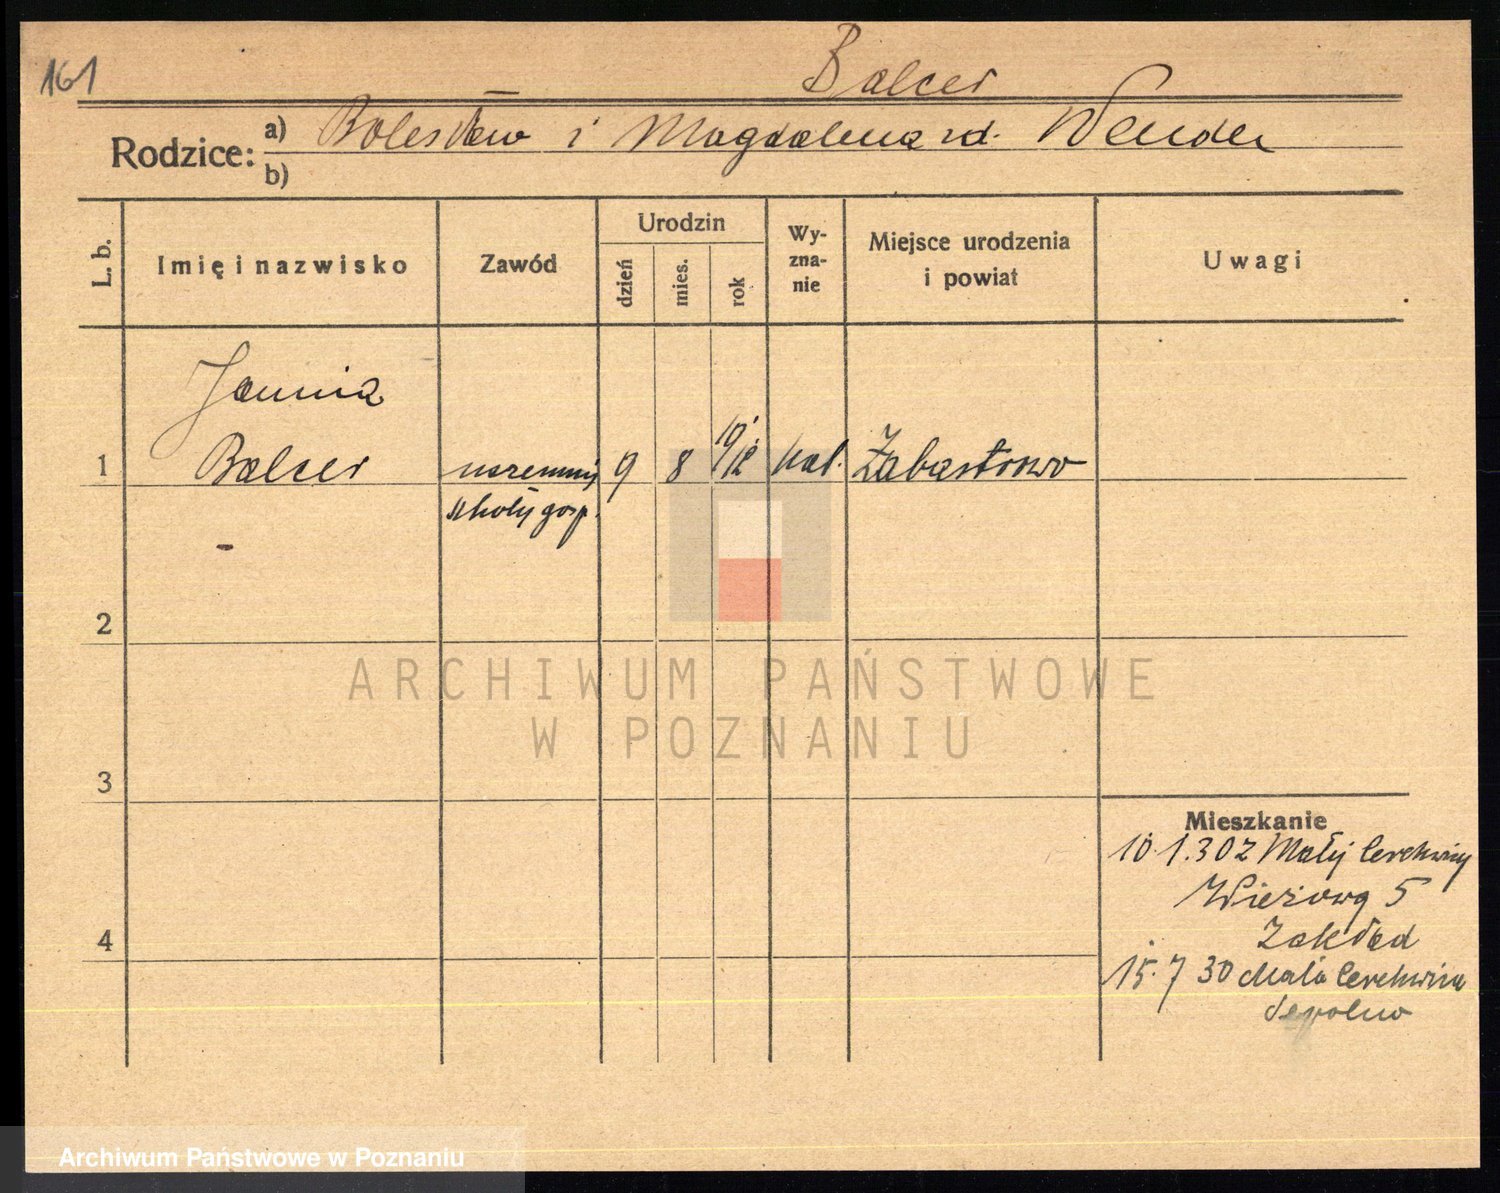 161
Balcer
Rodzice: a) Bolesław i Magdalena zd. Wender
b)
L. b.
Imię i nazwisko
Zawód
Urodzin
dzień
mies.
rok
Wy-
zna-
nie
Miejsce urodzenia
i powiat
Uwagi
Janina
1 Balcer uczennicy 9 8 1912 kat.
szkoły gosp.
2
3
4
Mieszkanie
10.1.30 z Małej Cerekwicy
Wieżowa 5
Zakład
15.7 30 Mała Cerekwica
Sępolno
ARCHIWUM PAŃSTWOWE
W POZNANIU
Archiwum Państwowe w Poznaniu